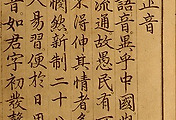 正音
語音異乎中國
流通故愚民有
不得伸其情者多
憫然新制二十八
人易習便於日
音如君字初發聲